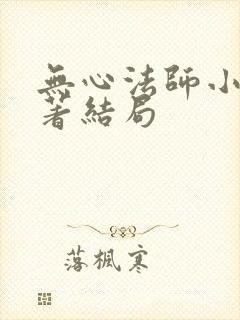 無心法師小
著結局
落楓寒